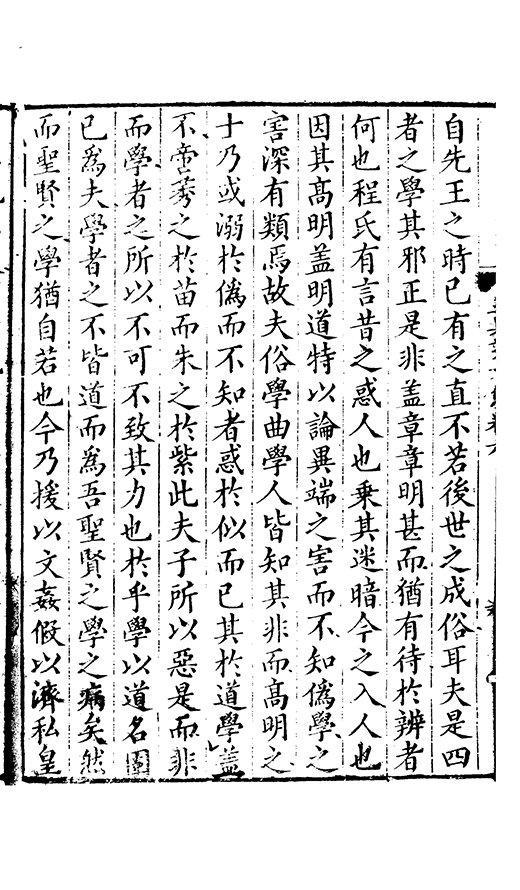 自先王之時已有之直不若後世之成俗耳夫是四
者之學其邪正是非盖章章明甚而猶有待於辨者
何也程氏有言昔之惑人也乗其迷暗今之入人也
因其髙明盖明道特以論異端之害而不知偽學之
害深有類焉故夫俗學曲學人皆知其非而髙明之
士乃或溺於偽而不知者惑於似而已其於道學盖
不啻莠之於苗而朱之於紫此夫子所以惡是而非
而學者之所以不可不致其力也於乎學以道名固
已爲夫學者之不皆道而爲吾聖賢之學之病矣然
而聖賢之學猶自若也今乃援以文姦假以濟私皇